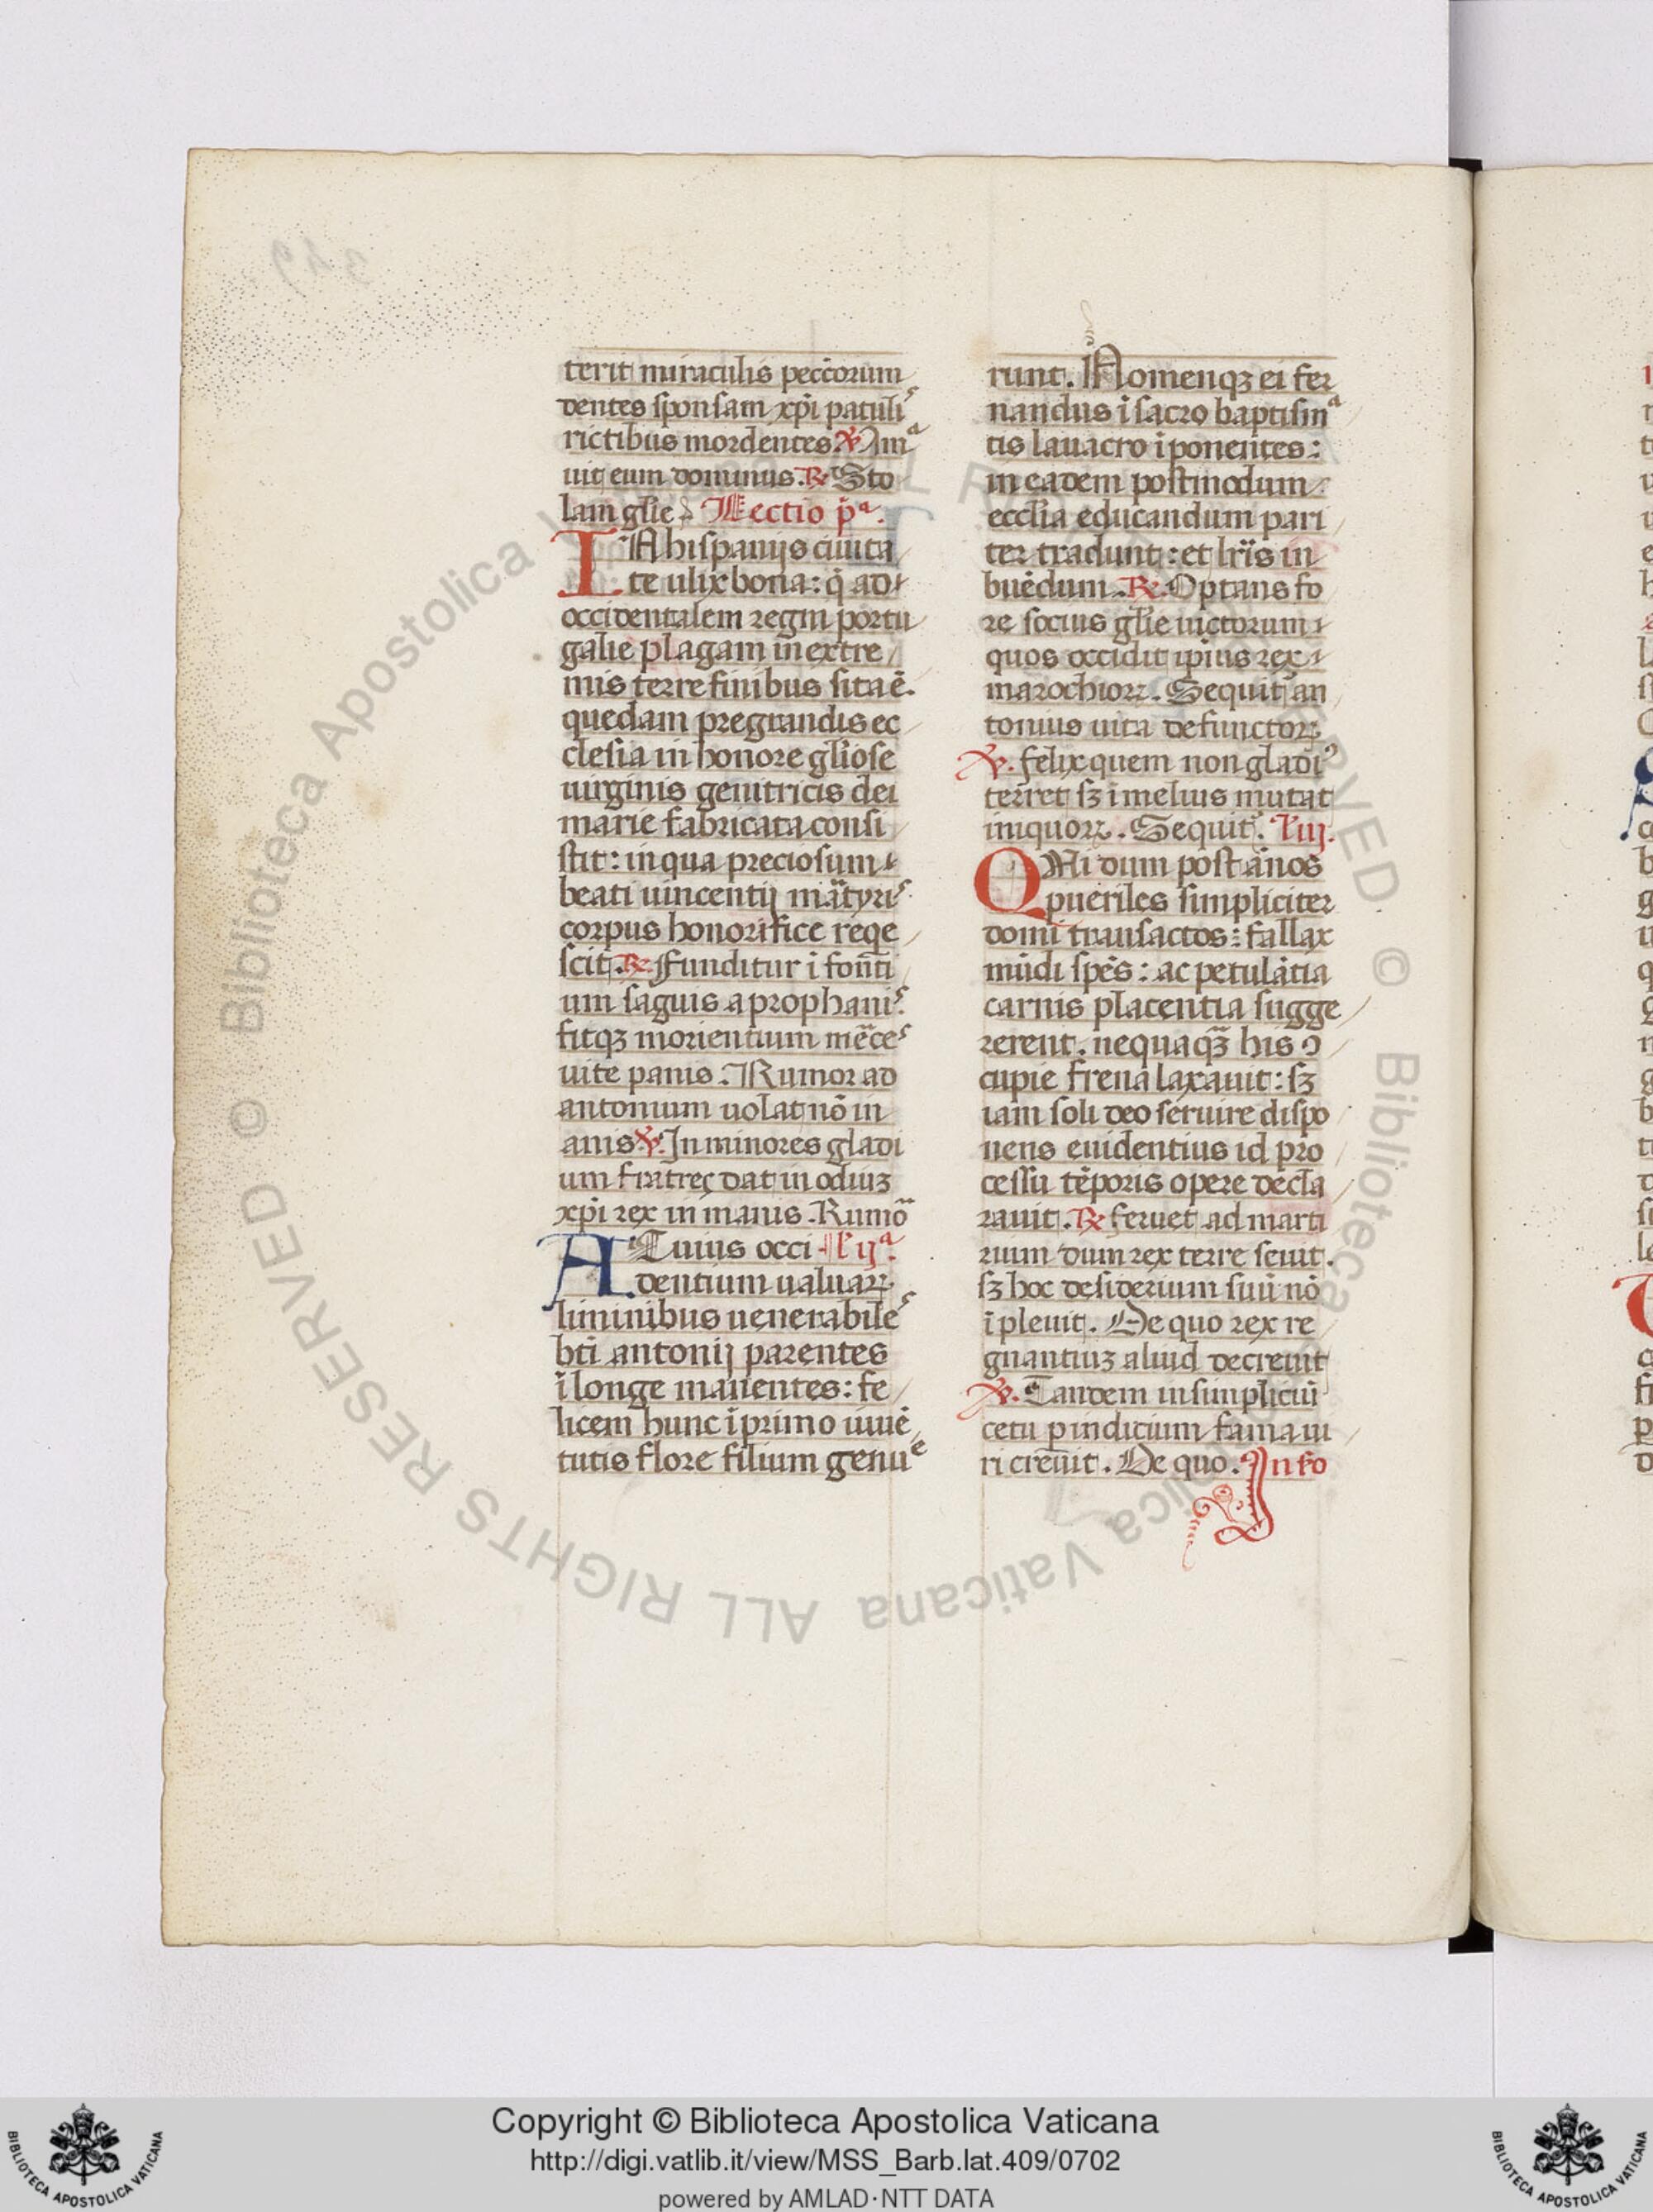 terit miraculis peccorum
dentes sponsam xp̄i patuli
rictibus mordentes. ℣. Ama
uit eum dominus. ℞. Sto
lam gl̄ie. Lectio pª.
IN hispanijs ciuita
te ulixbona: q̄ ad
occidentalem regni portu
galie plagam in extre
mis terre finibus sita ē.
quedam pregrandis ec
clesia in honore gl̄iose
uirginis genitricis dei
marie fabricata consi
stit: in qua preciosum
beati uincentij mātyris
corpus honorifice reqe
scit. ℞. Funditur ī fonti
um saguis a prophanis
fitqꝫ morientium mēces
uite panis. Rumor ad
antonium uolat nō in
anis ℣. In minores gladi
um fratres dat in odiuꝫ
xp̄i rex in manis. Rumo
ACuius occi l' ijª.
dentium ualuaꝝ
liminibus uenerabiles
bt̄i antonij parentes
ī longe manentes: fe
licem hunc ī primo iuuē
tutis flore filium genue
runt. Nomenqꝫ ei fer
nandus ī sacro baptisma
tis lauacro īponentes:
in eadem postmodum
eccl̄ia educandum pari
ter tradunt: et lr̄is in
buēdum. ℞. Optans fo
re socius gl̄ie uictorum
quos occidit ipius rex
marochioꝝ. Sequit̄ an
tonius uita defunctoꝝ
℣. felix quem non gladi⁹
terret sꝫ ī melius mutat
iniquoꝝ. Sequit̄. l' iij.
QUi dum post ānos
pueriles simpliciter
domi transactos: fallax
mūdi spēs: ac petulātia
carnis placentia sugge
rerent. nequaqꝫ̄ his ↄ
cupie frena laxauit: sꝫ
iam soli deo seruire dispo
nens euidentius id pro
cessu tēporis opere decla
rauit. ℞. feruet ad marti
rium dum rex terre seuit.
sꝫ hoc desiderium suū nō
īpleuit. De quo rex re
gnantiuꝫ aliud decreuit
℣. Tandem in simpliciū
cetu p indicium fama ui
ri creuit. De quo. In fo
Copyright © Biblioteca Apostolica Vaticana
http://digi.vatlib.it/view/MSS_Barb.lat.409/0702
powered by AMLAD·NTT DATA
BIBLIOTECA APOSTOLICA VATICANA
BIBLIOTECA APOSTOLICA VATICANA
© Biblioteca Apostolica Vaticana ALL RIGHTS RESERVED